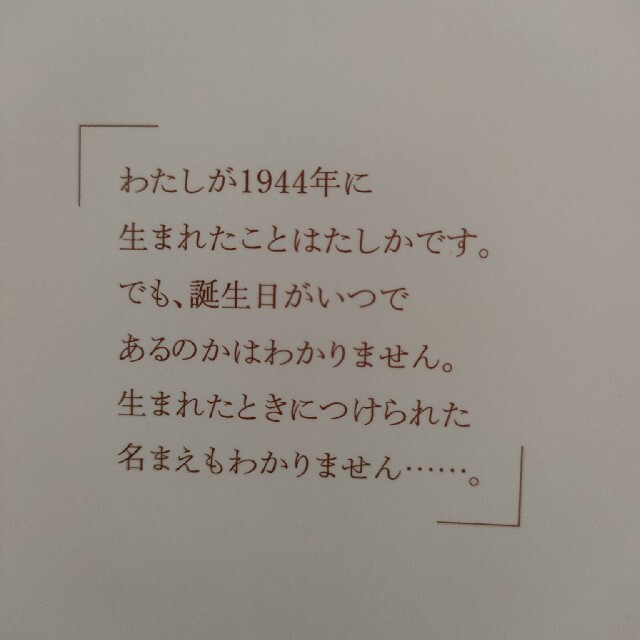 わたしが1944年に
生まれたことはたしかです。
でも、誕生日がいつで
あるのかはわかりません。
生まれたときにつけられた
名まえもわかりません……。